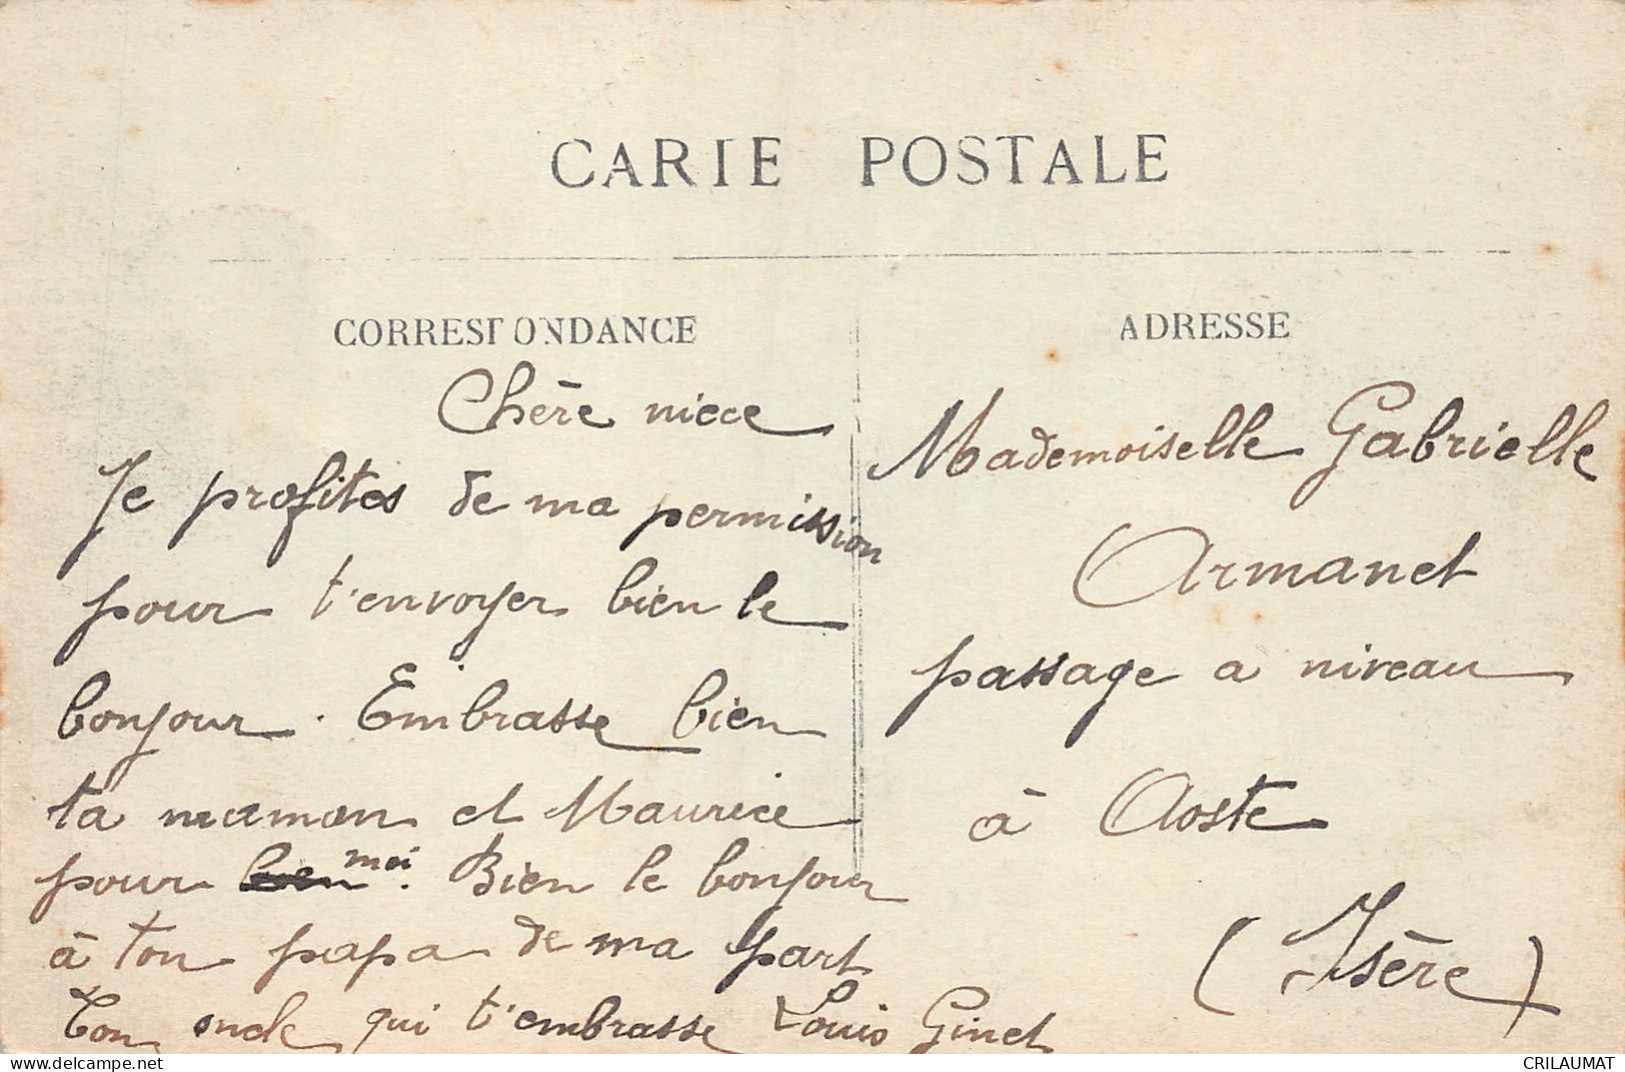 CARTE POSTALE
CORRESPONDANCE
Chère niece
Je profites de ma permission
pour t'envoyer bien le
bonjour. Embrasse bien
ta maman et Maurice
pour moi. Bien le bonjour
à ton papa de ma part
Ton oncle qui t'embrasse Louis Ginet
ADRESSE
Mademoiselle Gabrielle
Armanet
passage a niveau
à Aoste
(Isère)
delcampe.net
CRILAUMAT